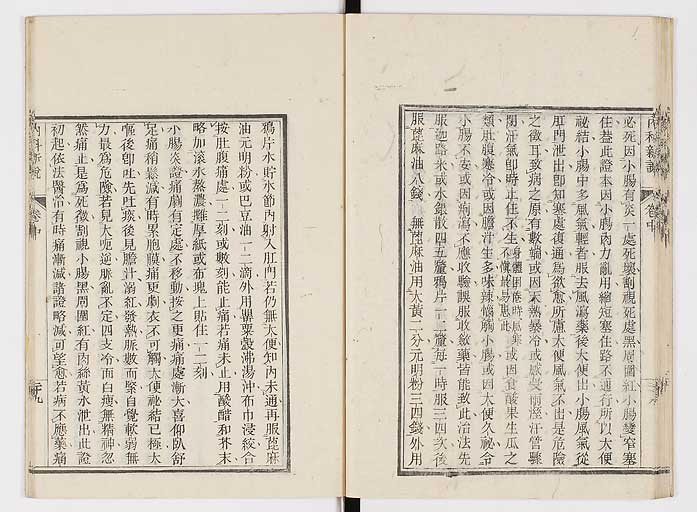 必死因小腸有炎一處死壞割視死處黑周圍紅小腸變窄塞
住蓋此證本因小腸內力亂用縮短塞住路不通行所以大便
祕結小腸中多風氣輕者服去風瀉藥後大便出小腸風氣從
肛門泄出卽知塞處復通為欲愈所慮大便風氣不出是危險
之徵耳致病之原有數端或因天熱暴冷或感受雨溼汗管驟
閉汗氣卽時止住不生
或因食酸果生瓜之
類肚腹寒冷或因膽汁生多味辣惱胸小腸或因大便久祕令
小腸不安或因痢瀉不應收驗誤服收斂藥皆能致此治法先
服迦路米或水銀散四五釐鴉片一二釐每一時服三四次後
服蓖麻油八錢無蓖麻油用大黃二分元明粉三四錢外用
內科新說
卷中
鴉片水貯水節內射入肛門若仍無大便知內未通再服蓖麻
油元明粉或巴豆油一二滴外用罌粟殼沸湯沖布巾浸絞合
按肚腹痛處一二刻或數刻能止痛若痛未止用酸醋和芥末
略加滾水蒸濃攤厚紙或布塊上貼住一二刻
小腸炎證痛胸有定處不移動按之更痛痛處漸大喜仰臥舒
足痛稍鬆減有時累胞膜痛更劇衣不可觸大便祕結已極太
慪後卽吐先吐痰後見膽汁溺紅發熱脈數而緊自覺軟弱無
力最為危險若見大呃逆脈亂不定四支冷而白瘦無精神忽
然痛止是為死徵割視小腸黑周圍紅有肉絲黃水泄出此證
初起依法醫治有時痛漸減諸證略減可望愈若病不應藥痛
內科新說
卷中
二十九